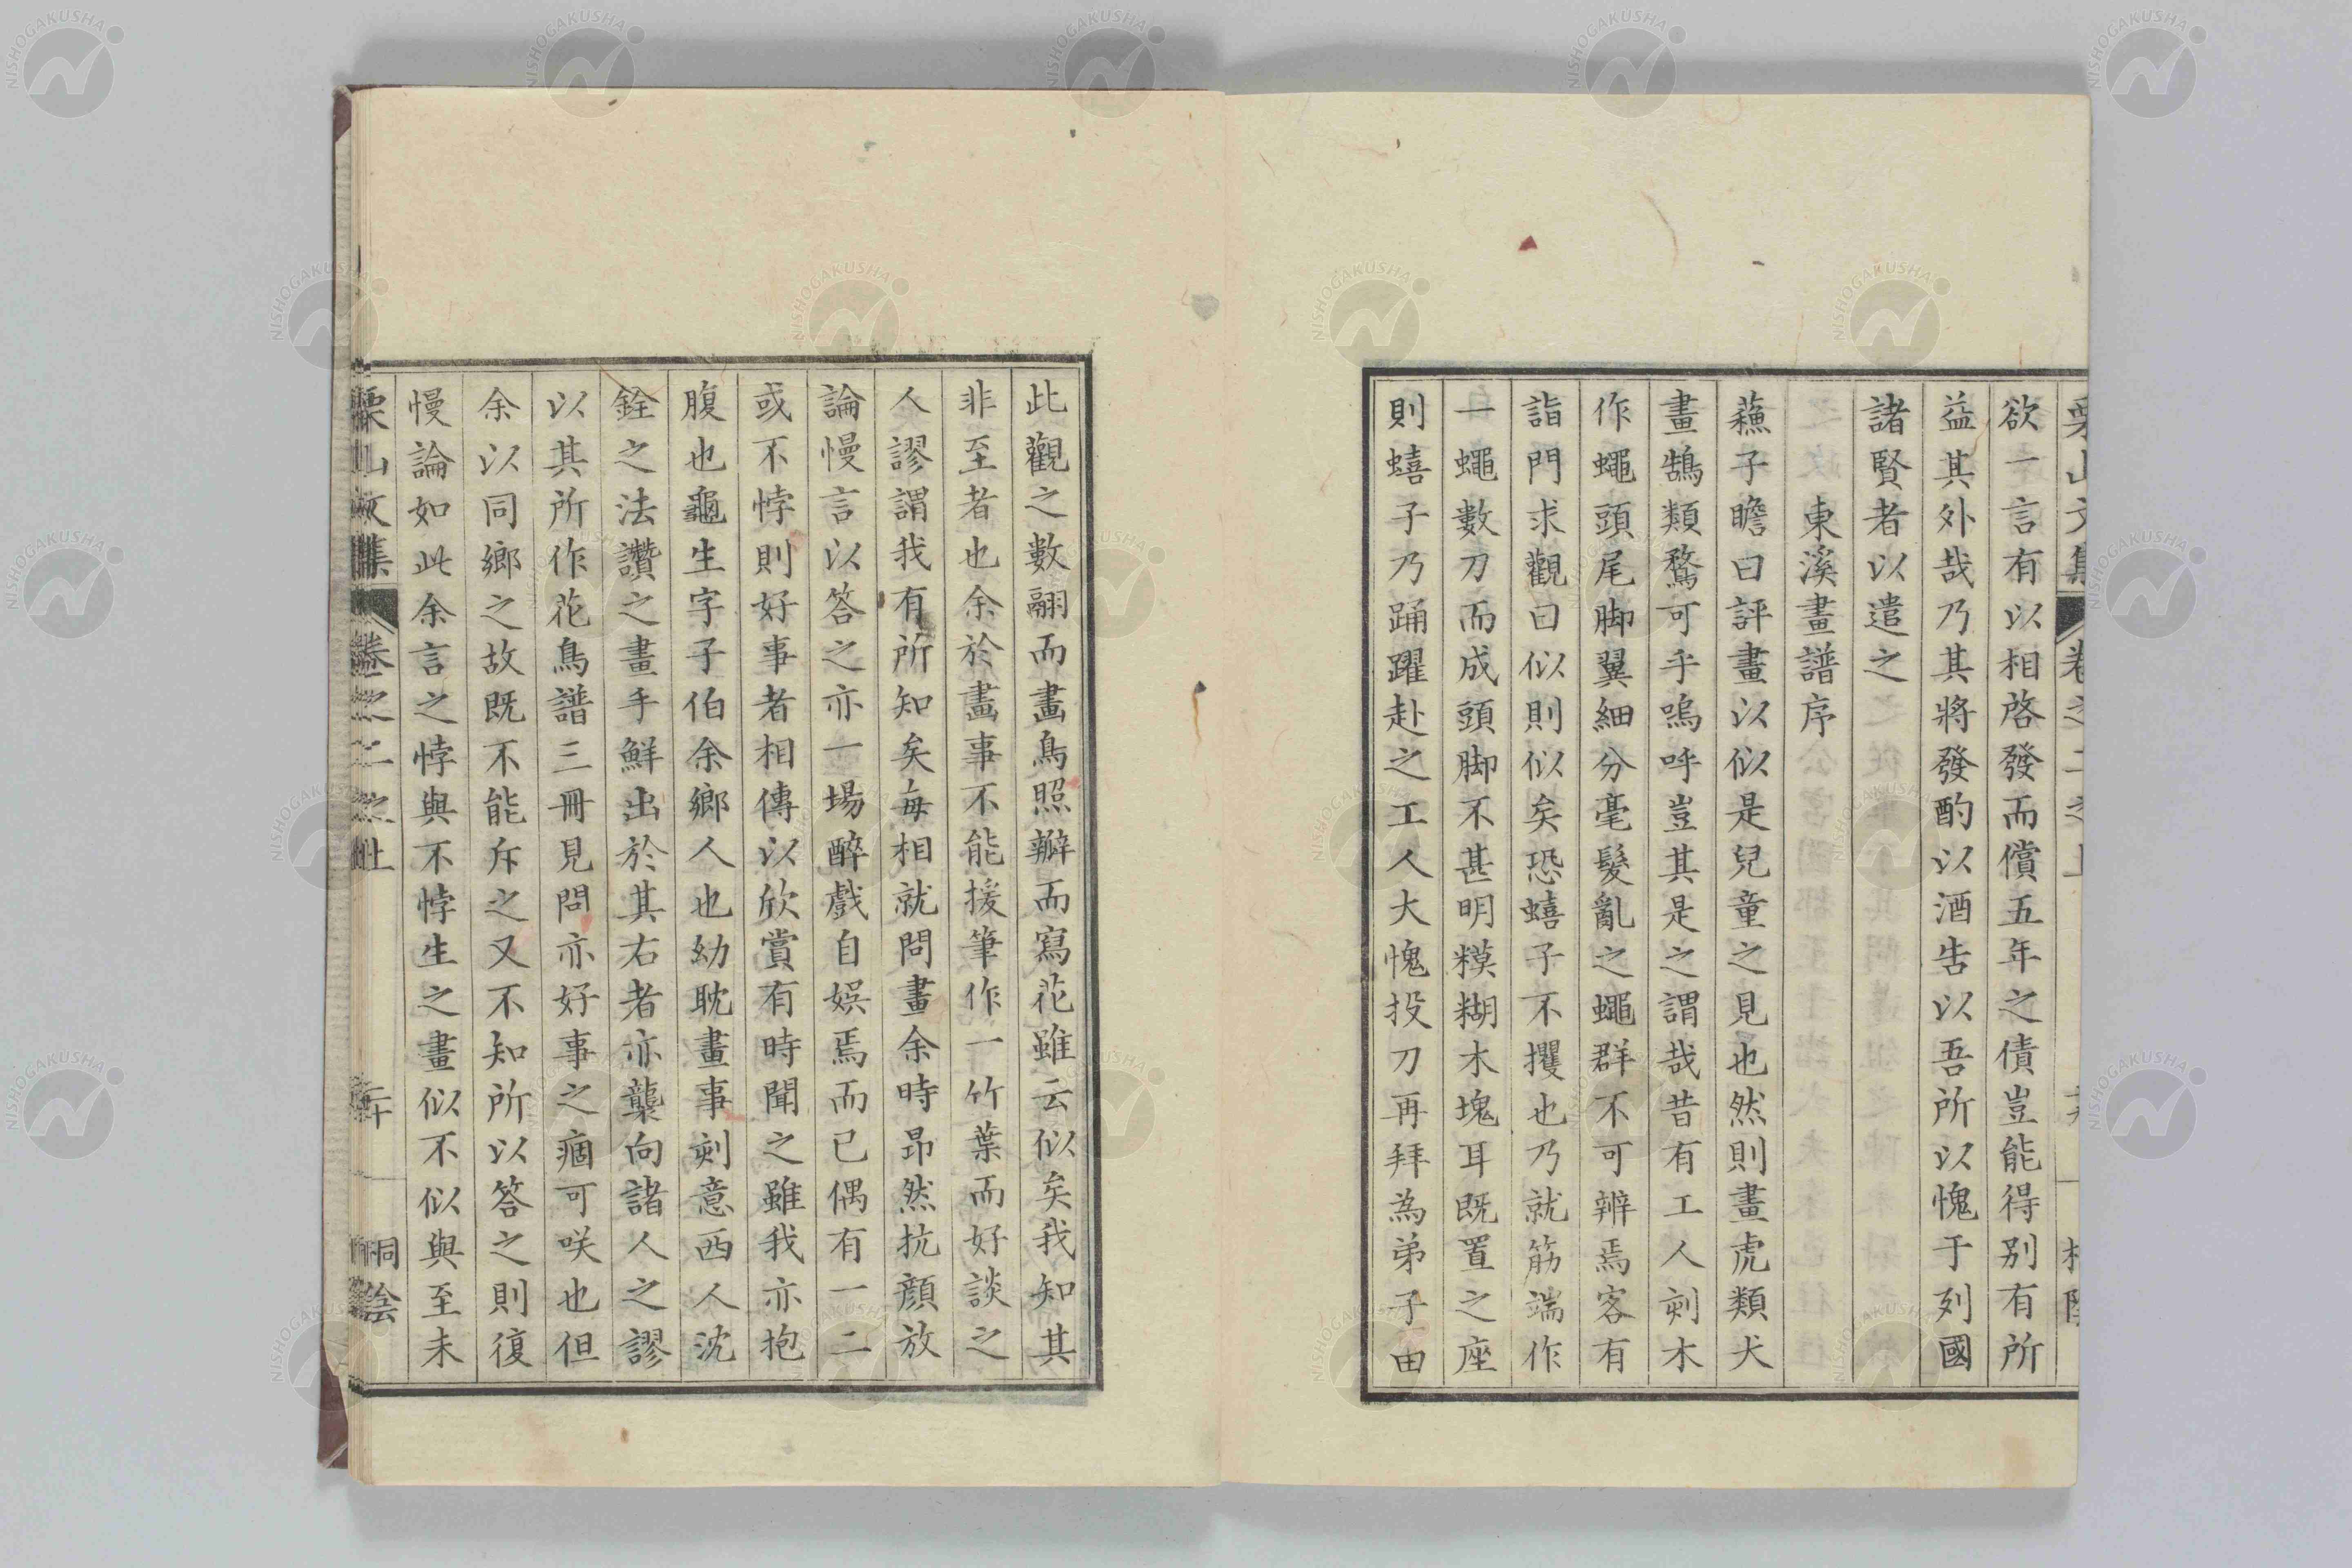 欲一言有以相啓發而償五年之債豈能得別有所
益其外哉乃其將發酌以酒告以吾所以愧于列國
諸賢者以遣之
東溪畫譜序
蘓子瞻曰評畫以似是兒童之見也然則畫虎類犬
畫鵠類鶩可乎嗚呼豈其是之謂哉昔有工人刻木
作蠅頭尾脚翼細分毫髮亂之蠅群不可辨焉客有
詣門求觀曰似則似矣恐蟢子不攫也乃就筋端作
一蠅數刀而成頭脚不甚明糢糊木塊耳既置之座
則蟢子乃踊躍赴之工人大愧投刀再拜為弟子由
此觀之數翮而畫鳥照瓣而寫花雖云似矣我知其
非至者也余於畫事不能援筆作一竹葉而好談之
人謬謂我有所知矣每相就問畫余時昂然抗顔放
論慢言以答之亦一場醉戲自娯焉而已偶有一二
或不悖則好事者相傳以欣賞有時聞之雖我亦抱
腹也龜生字子伯余鄉人也幼耽畫事刻意西人沈
銓之法讚之畫手鮮出於其右者亦襲向諸人之謬
以其所作花鳥譜三冊見問亦好事之痼可咲也但
余以同鄉之故既不能斥之又不知所以答之則復
慢論如此余言之悖與不悖生之畫似不似與至未
栗山文集 卷之二之上 二十 桐陰
NISHOGAKUSHA